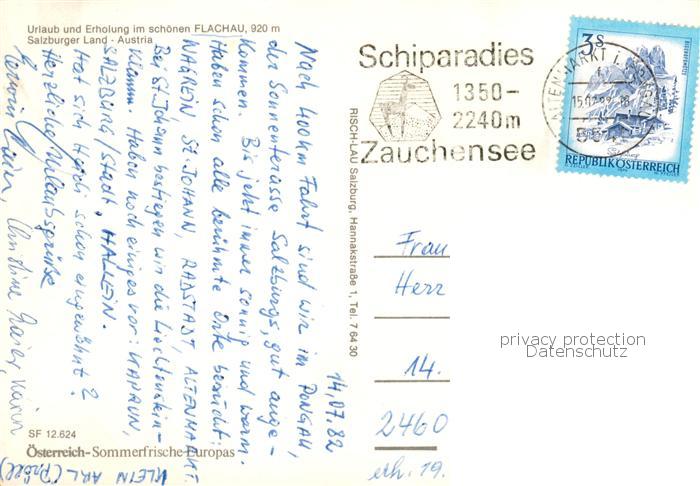 Urlaub und Erholung im schönen FLACHAU, 920 m
Salzburger Land - Austria
14.07.82
Nach 400km Fahrt sind wir im PONGAU,
der Sonnenterasse Salzburgs, gut ange-
kommen. Bis jetzt immer sonnig und warm.
Haben schon alle berühmte Orte besucht:
WAGREIN, ST. JOHANN, RADSTADT, ALTENMARKT.
Bei St. Johann bestiegen wir die Liechtenstein-
klamm. Haben noch einiges vor: KAPRUN,
SALZBURG/Stadt, HALLEIN.
Hat sich Heidi schon eingewöhnt?
Herzliche Urlaubsgrüße
Christine
KLEIN ARL
SF 12.624
Österreich-Sommerfrische Europas
RISCH-LAU Salzburg, Hannakstraße 1, Tel. 7 64 30
Schiparadies
1350-
2240m
Zauchensee
ALTENMARKT i.
3 S
REPUBLIK ÖSTERREICH
Frau
Herr
14.
2460
erh. 19.
privacy protection
Datenschutz